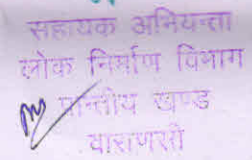 सहायक अभियन्ता
लोक निर्माण विभाग
प्रान्तीय खण्ड
वाराणसी